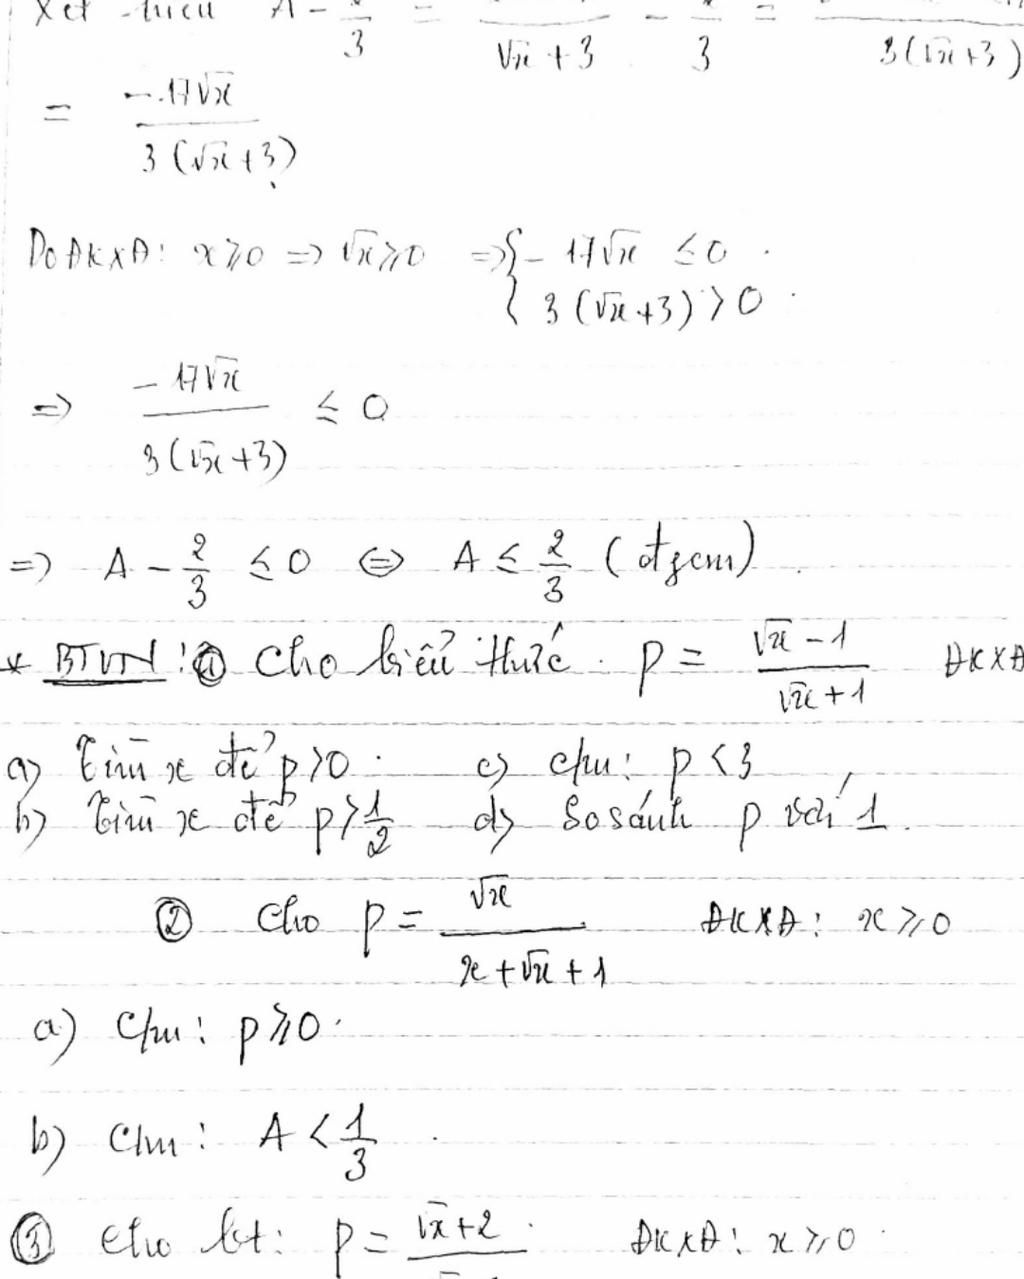 Xét hiệu A - 3 = √x + 3 - 3 = 3(√x+3)
= -17√x / 3(√x+3)
Do ĐKXĐ: x ≥ 0 => √x ≥ 0 => { -17√x ≤ 0
3(√x+3) > 0
=> -17√x / 3(√x+3) ≤ 0
=> A - 2/3 ≤ 0 ⇔ A ≤ 2/3 (đfcm)
* BTVN: ① Cho biểu thức. P = (√x - 1)/(√x + 1) ĐKXĐ
a) Tìm x để P > 0. c) c/m: P < 3
b) Tìm x để P > 1/2 d) So sánh P với 1.
② Cho P = √x / (x + √x + 1) ĐKXĐ: x ≥ 0
a) C/m: P ≥ 0.
b) C/m: A < 1/3.
③ Cho bt: P = √x + 2 ĐKXĐ: x ≥ 0